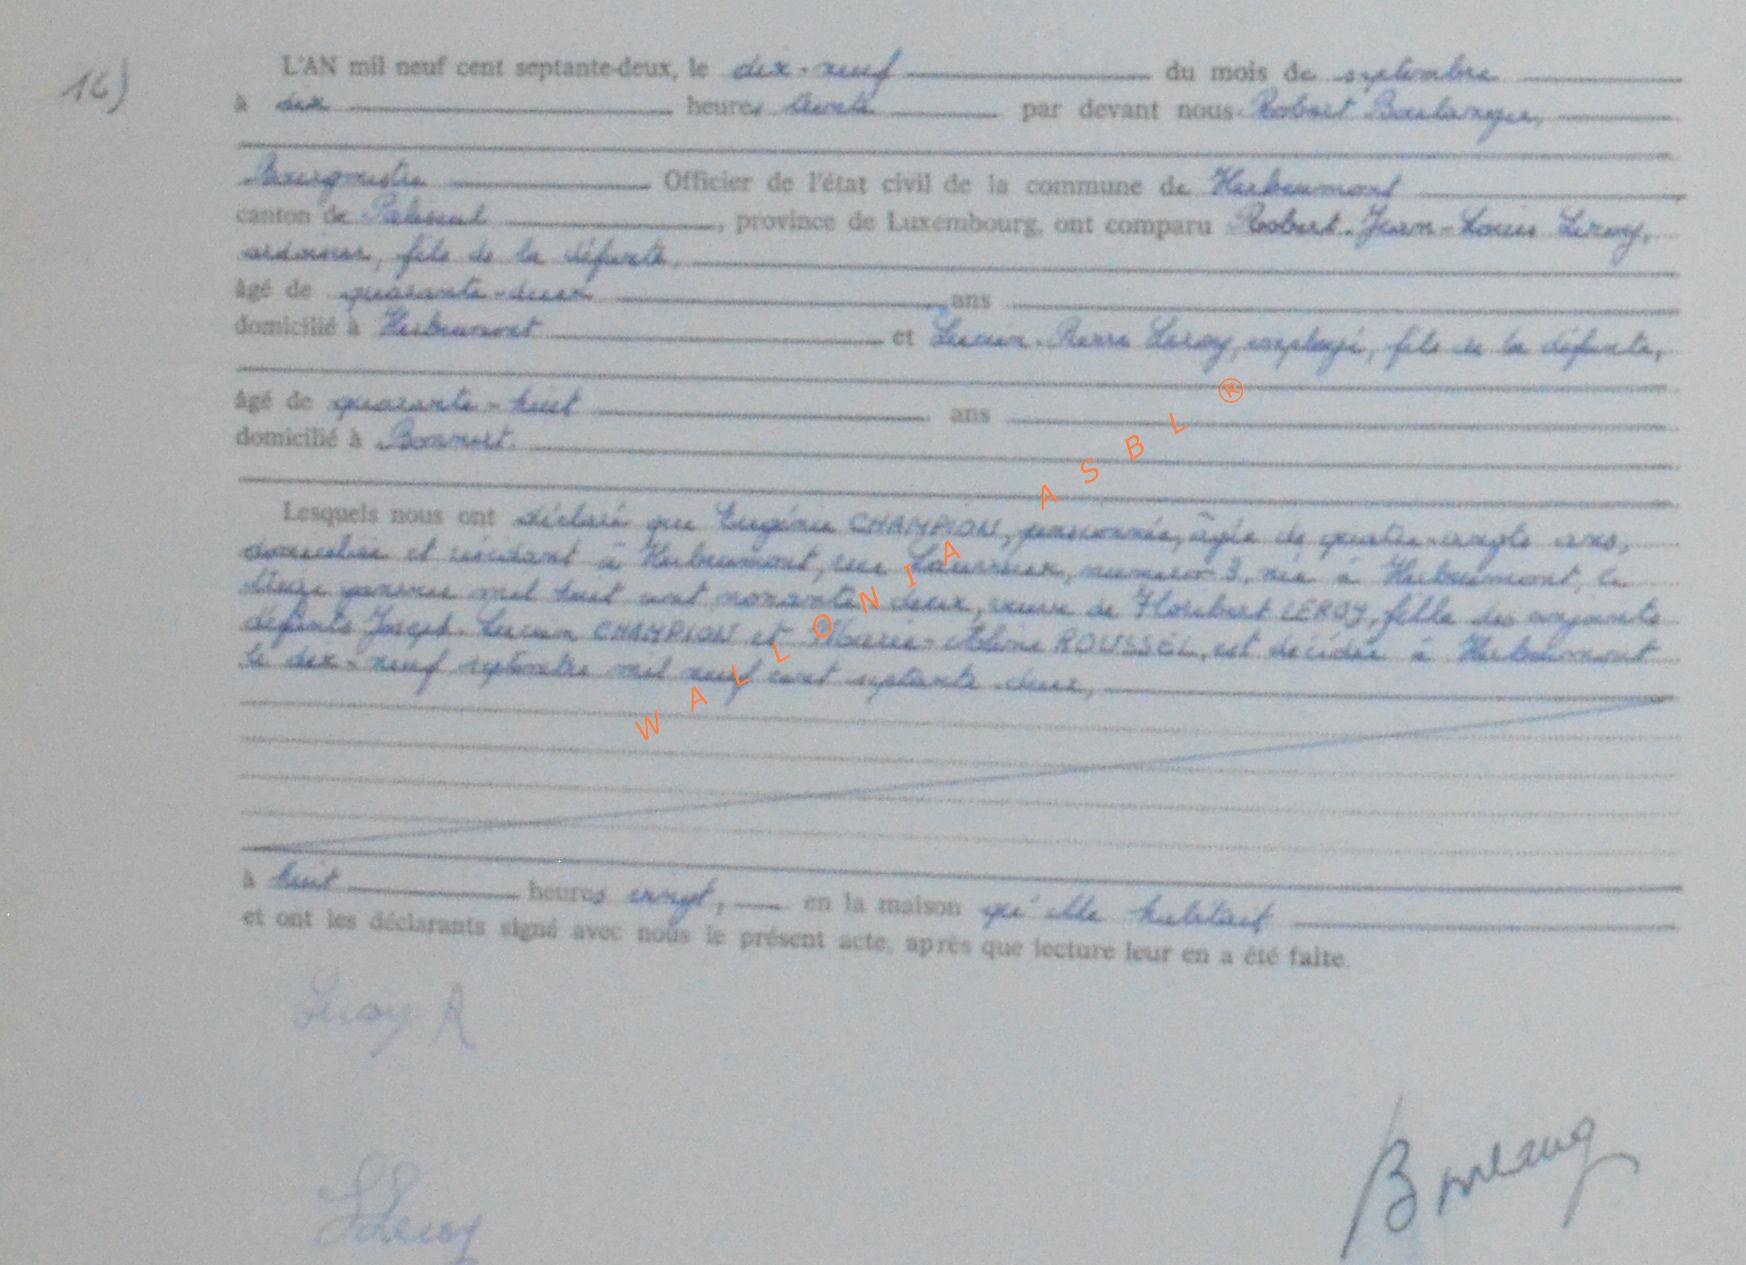 16)
L'AN mil neuf cent septante-deux, le dix-neuf du mois de septembre
à dix heures trente par devant nous Robert Boulanger,
Bourgmestre Officier de l'état civil de la commune de Herbeumont
canton de Paliseul, province de Luxembourg, ont comparu Robert-Jean-Louis Leroy,
ardoisier, fils de la défunte,
âgé de quarante-deux ans
domicilié à Herbeumont et Lucien-Pierre Leroy, employé, fils de la défunte,
âgé de quarante-huit ans
domicilié à Bonnert.
Lesquels nous ont déclaré que Eugénie CHAMPION, pensionnée, âgée de quatre-vingts ans,
domiciliée et résidant à Herbeumont, rue numéro 3, née à Herbeumont, le
janvier mil huit cent nonante-deux, veuve de Floribert LEROY, fille des conjoints
défunts Joseph-Lucien CHAMPION et Marie- ROUSSEL, est décédée à Herbeumont
le dix-neuf septembre mil neuf cent septante-deux,
à huit heures vingt, en la maison qu'elle habitait
et ont les déclarants signé avec nous le présent acte, après que lecture leur en a été faite.
Leroy R
LLeroy
WALLONIA ASBL ®